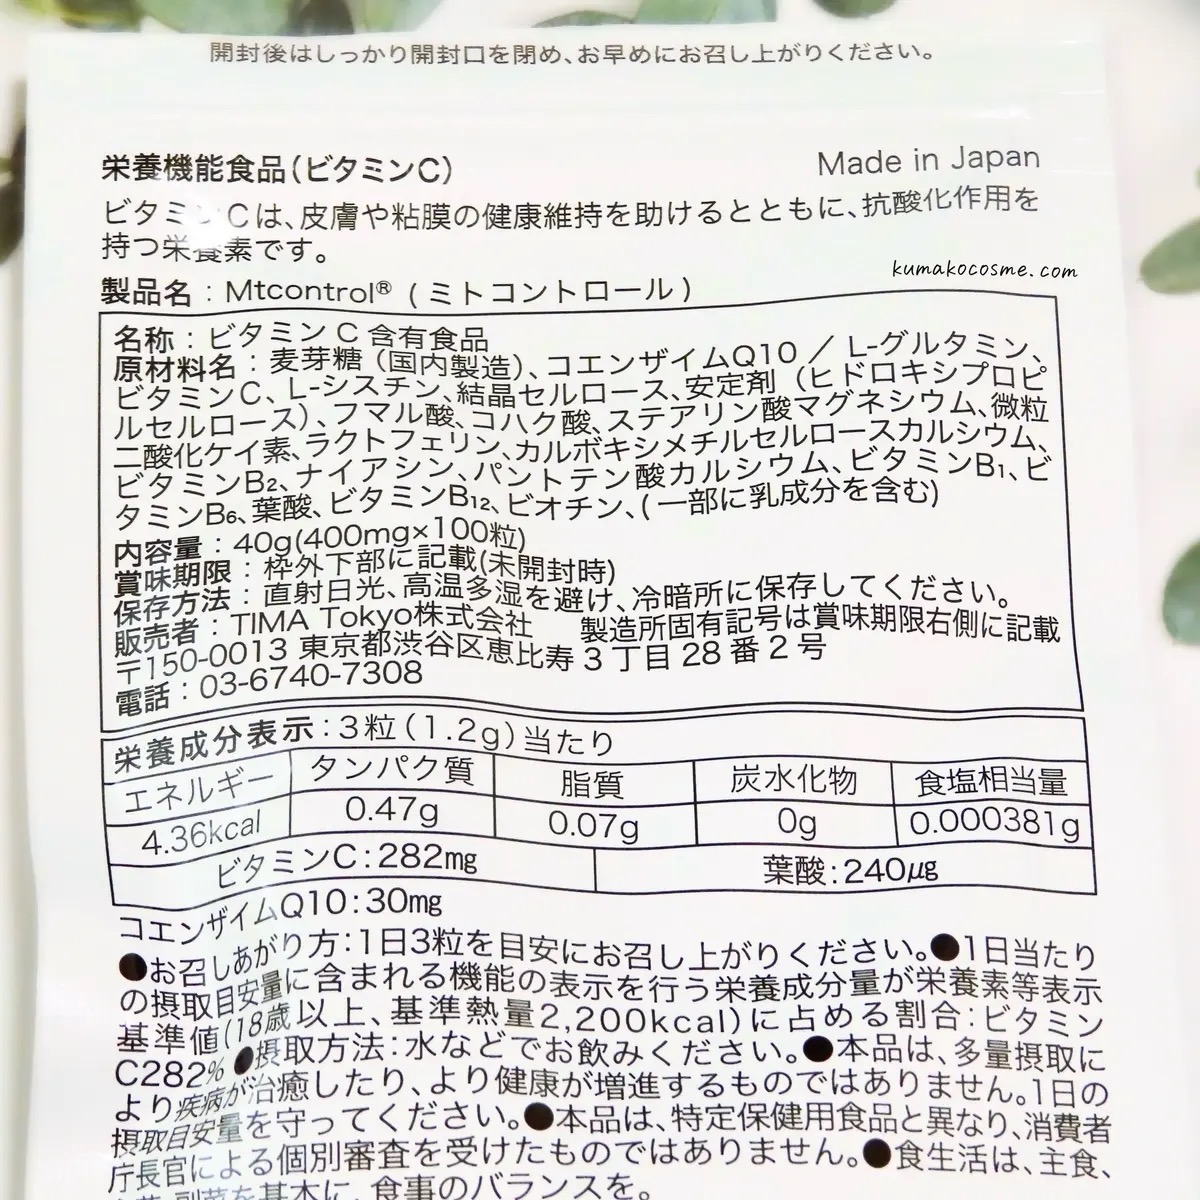 開封後はしっかり開封口を閉め、お早めにお召し上がりください。
栄養機能食品(ビタミンC)
Made in Japan
ビタミンCは、皮膚や粘膜の健康維持を助けるとともに、抗酸化作用を
持つ栄養素です。
kumakocosme.com
製品名：Mtcontrol®(ミトコントロール)
名称：ビタミンC含有食品
原材料名：麦芽糖（国内製造）、コエンザイムQ10／L-グルタミン、
ビタミンC、L-シスチン、結晶セルロース、安定剤（ヒドロキシプロピ
ルセルロース）、フマル酸、コハク酸、ステアリン酸マグネシウム、微粒
二酸化ケイ素、ラクトフェリン、カルボキシメチルセルロースカルシウム、
ビタミンB₂、ナイアシン、パントテン酸カルシウム、ビタミンB₁、ビ
タミンB₆、葉酸、ビタミンB₁₂、ビオチン、(一部に乳成分を含む)
内容量：40g(400mg×100粒)
賞味期限：枠外下部に記載(未開封時)
保存方法：直射日光、高温多湿を避け、冷暗所に保存してください。
販売者：TIMA Tokyo株式会社　製造所固有記号は賞味期限右側に記載
〒150-0013 東京都渋谷区恵比寿3丁目28番2号
電話：03-6740-7308
栄養成分表示：3粒(1.2g)当たり
エネルギー タンパク質 脂質 炭水化物 食塩相当量
4.36kcal 0.47g 0.07g 0g 0.000381g
ビタミンC：282mg 葉酸：240μg
コエンザイムQ10：30mg
●お召しあがり方：1日3粒を目安にお召し上がりください。●1日当たり
の摂取目安量に含まれる機能の表示を行う栄養成分量が栄養素等表示
基準値(18歳以上、基準熱量2,200kcal)に占める割合：ビタミン
C282% ●摂取方法：水などでお飲みください。●本品は、多量摂取に
より疾病が治癒したり、より健康が増進するものではありません。1日の
摂取目安量を守ってください。●本品は、特定保健用食品と異なり、消費者
庁長官による個別審査を受けたものではありません。●食生活は、主食、
主菜、副菜を基本に、食事のバランスを。